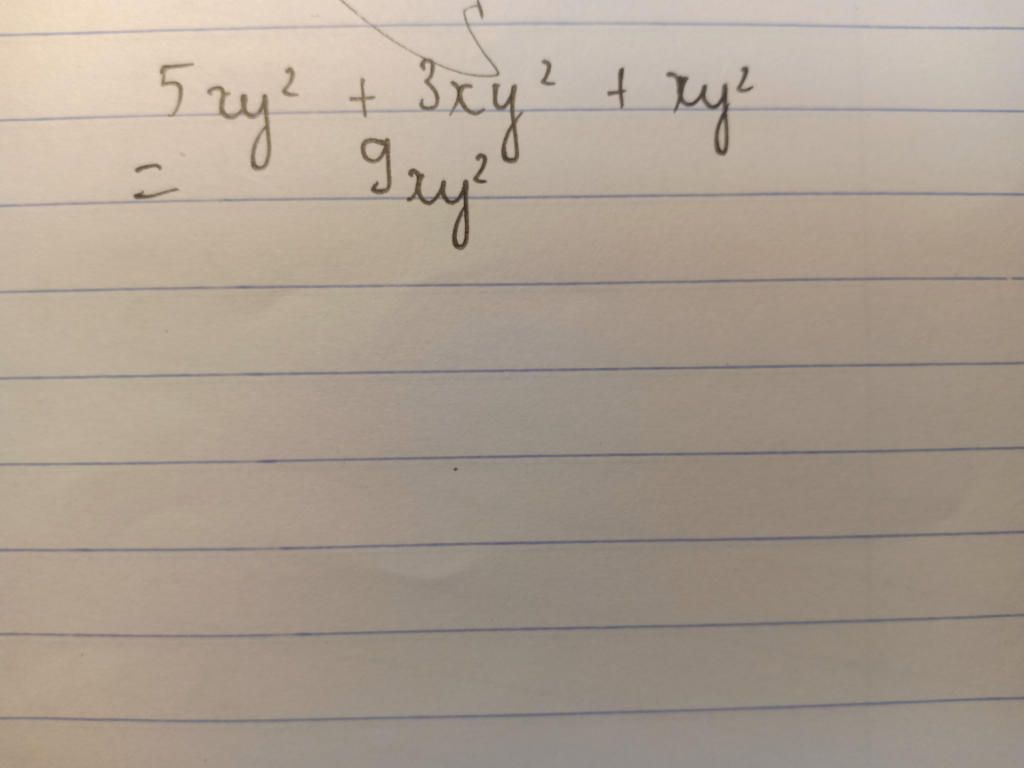 5xy² + 3xy² + xy²
= 9xy²